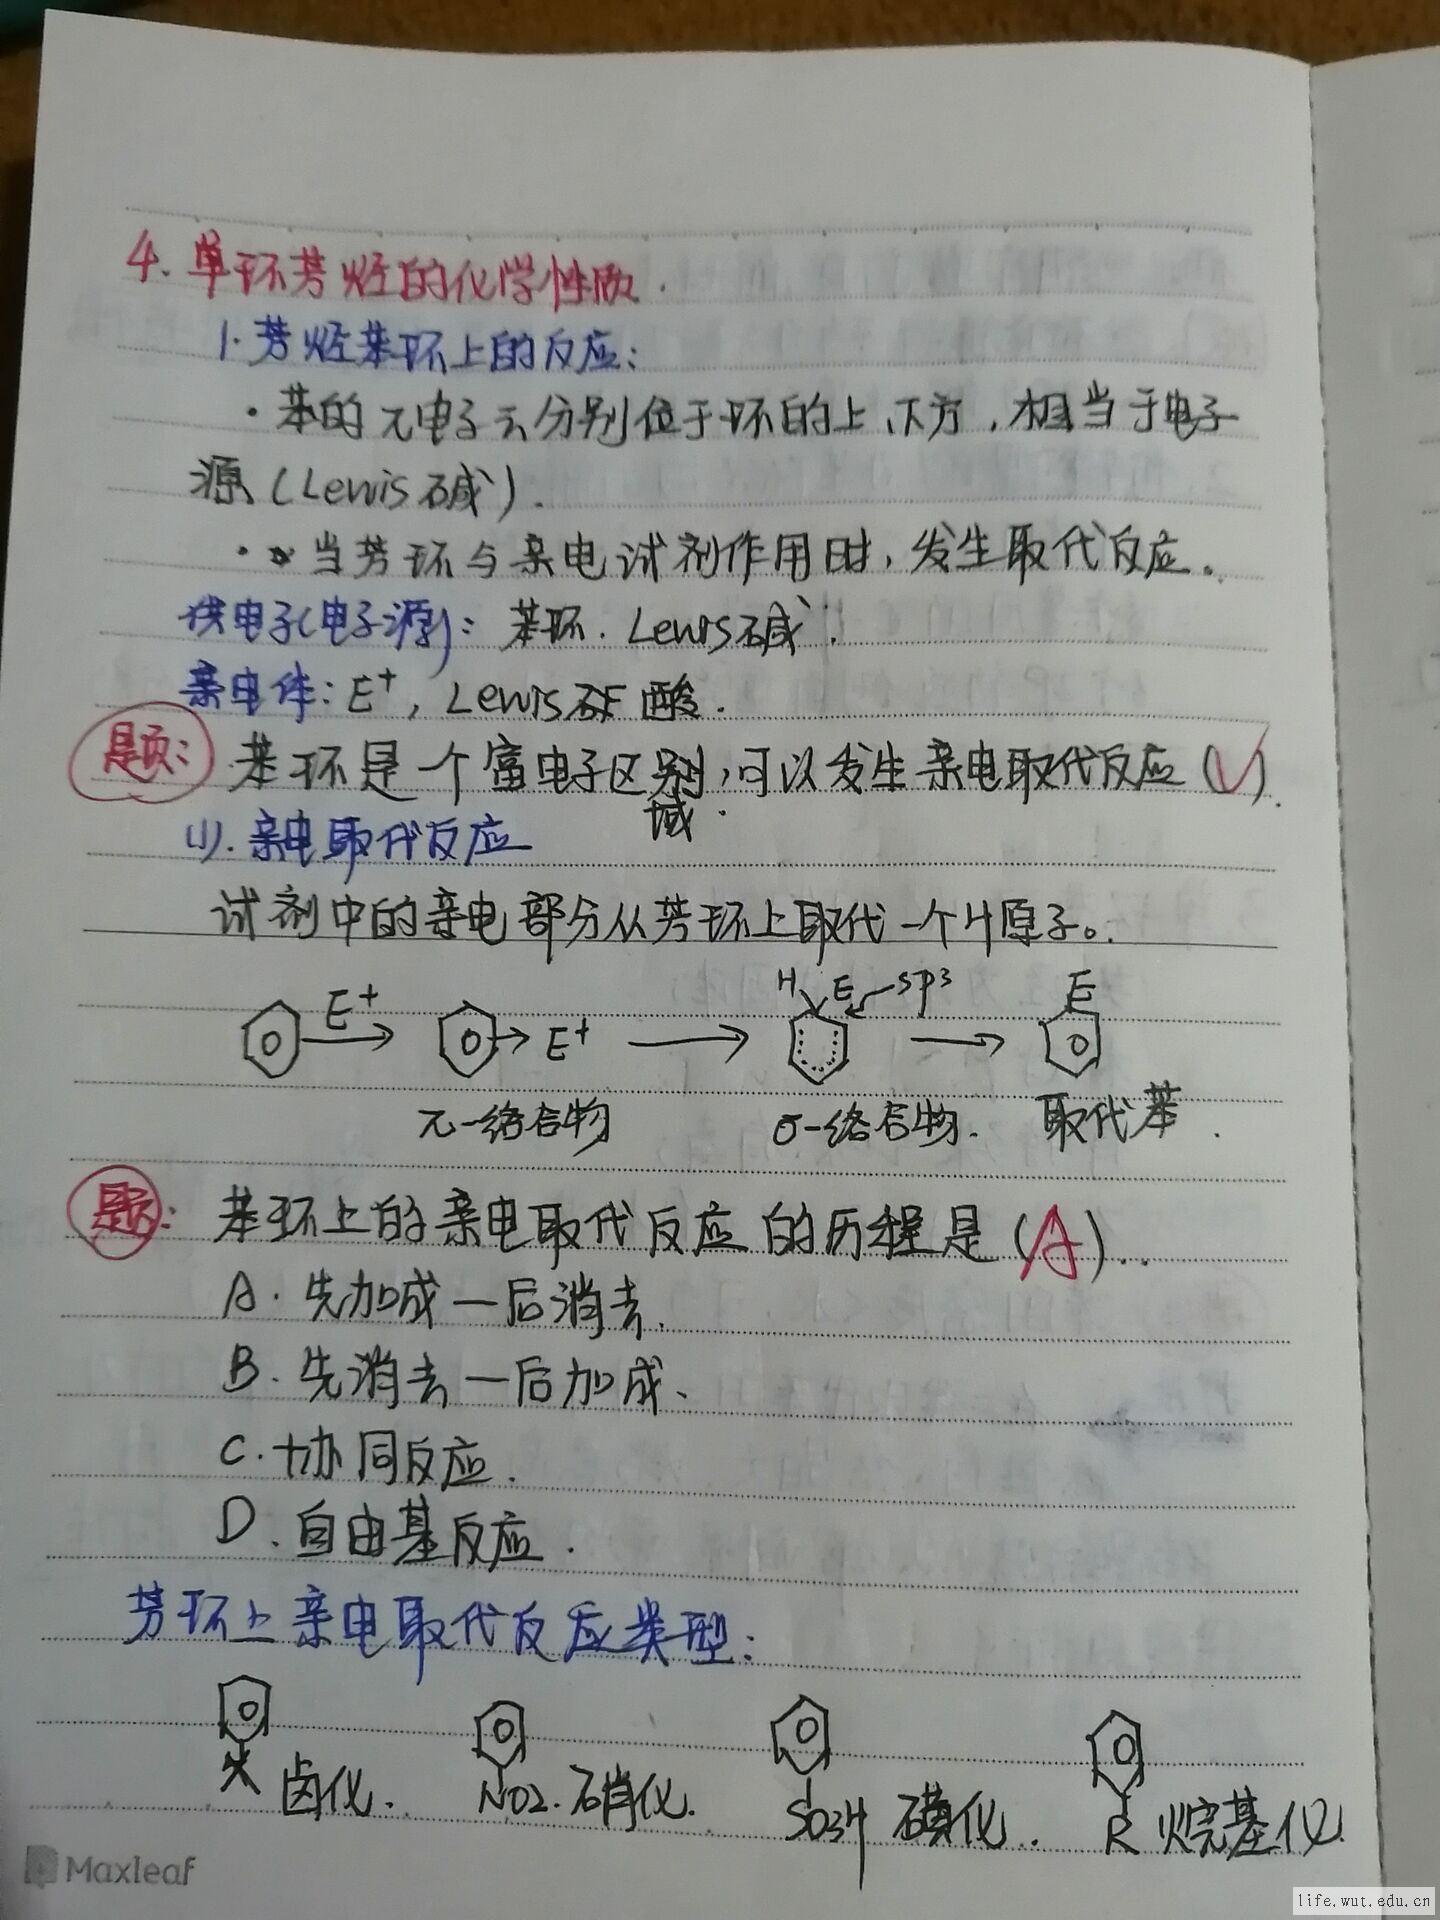 4. 单环芳烃的化学性质.
1. 芳烃苯环上的反应:
·苯的π电子云分别位于环的上、下方,相当于电子
源(Lewis碱).
·当芳环与亲电试剂作用时,发生取代反应。
供电子(电子源): 苯环. Lewis碱.
亲电体: E⁺, Lewis 酸.
题: 苯环是一个富电子区别,可以发生亲电取代反应(√).
域.
(1). 亲电取代反应
试剂中的亲电部分从芳环上取代一个H原子。
H E sp³ E
E⁺ E⁺
π-络合物 σ-络合物. 取代苯.
题: 苯环上的亲电取代反应的历程是(A)..
A. 先加成—后消去.
B. 先消去—后加成.
C. 协同反应.
D. 自由基反应.
芳环上亲电取代反应类型:
X 卤化. NO2. 硝化. SO3H 磺化. R 烷基化.
Maxleaf
life.wut.edu.cn